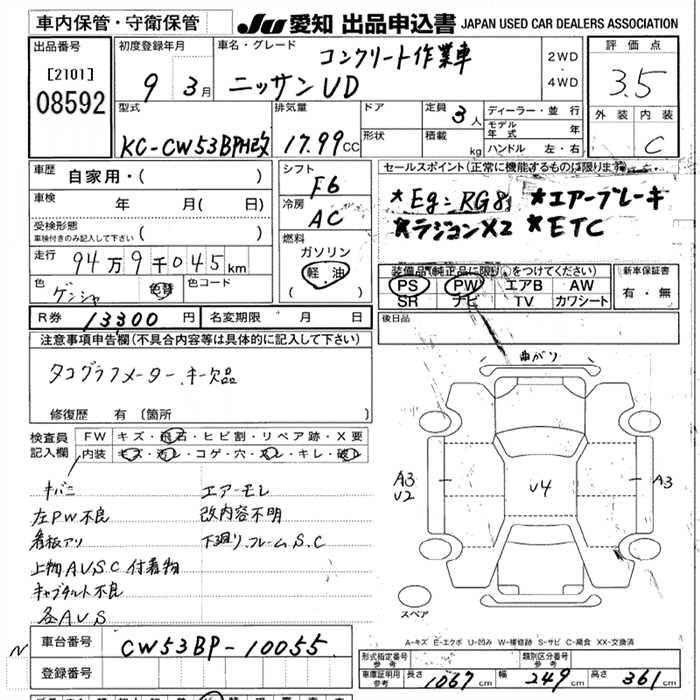 車内保管・守衛保管
JU 愛知 出品申込書 JAPAN USED CAR DEALERS ASSOCIATION
出品番号
[2101]
08592
初度登録年月
9 3月
車名・グレード
コンクリート作業車
ニッサンUD
2WD
・
4WD
評価点
3.5
外装 内装
C
型式
KC-CW53BPH改
排気量
17.99CC
ドア
形状
定員 3人
積載 kg
ディーラー・並行
モデル年式 年
ハンドル 左・右
車歴
自家用・( )
車検 年 月(日)
受検形態
車検付きのみ記入して下さい ( )
走行 94万9千045km
色 ゲンシャ 色替 色コード
シフト
F6
冷房
AC
燃料
ガソリン
軽油
( )
セールスポイント(正常に機能するものは限ります)
*Eg:RG8 *エアーブレーキ
*ラジコンX2 *ETC
装備品(純正品に限り○をつけてください)
PS PW エアB AW
SR ナビ TV カワシート
新車保証書
有・無
後日品
R券 13300円 名変期限 月 日
注意事項申告欄(不具合内容等は具体的に記入して下さい)
タコグラフメーター、キー欠品
修復歴 有(箇所 )
検査員
記入欄
FW キズ・飛石・ヒビ割・リペア跡・X要
内装 キズ・汚レ・コゲ・穴・スレ・キレ・破レ
キバミ
左PW不良
看板アリ
上物AUSC付着物
キャブチルト不良
各AUS
エアーモレ
改内容不明
下廻り、フレームS.C
曲がり
A3
U2
U4
A3
スペア
A-キズ E-エクボ U-凹み W-補修跡 S-サビ C-腐食 XX-交換済
N
車台番号 CW53BP-10055
登録番号
形式指定番号
参考
類別区分番号
参考
車庫証明用
参考
長さ 1067cm 幅 249cm 高さ 361cm